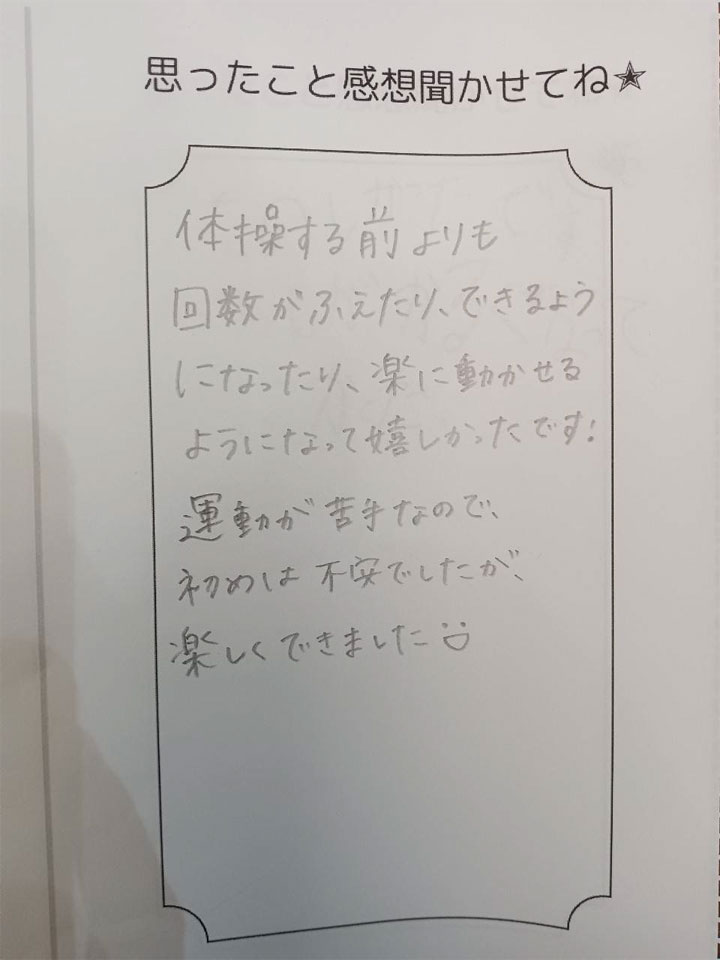 思ったこと感想聞かせてね★
体操する前よりも
回数がふえたり、できるよう
になったり、楽に動かせる
ようになって嬉しかったです!
運動が苦手なので、
初めは不安でしたが、
楽しくできました